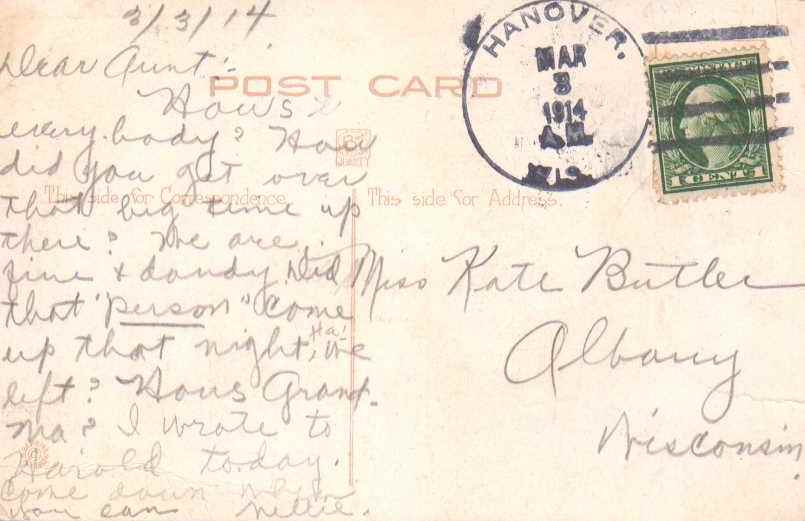 3/3/14
Dear Aunt:-
POST CARD
Hows
every body? How
did you get over
that big time up
there? We are
fine & dandy. Did
that "person" come
up that night, Ha! we
left? Hows Grand-
ma? I wrote to
Harold today.
Come down when
you can Nellie.
This side for Correspondence.
This side for Address.
HANOVER,
MAR
3
1914
A.M.
WIS.
1 CENT 1
Miss Kate Butler
Albany
Wisconsin.